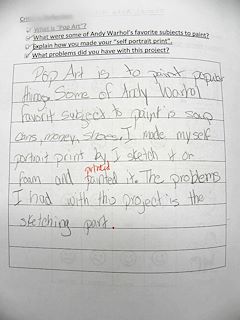 What is "Pop Art"?
What were some of Andy Warhol's favorite subjects to paint?
Explain how you made your "self portrait print".
What problems did you have with this project?
Pop Art is to paint popular
things. Some of Andy Warhol
favorit subject to paint is soup
cans, money, shoes. I made my self
portrait print by I sketch it or
foam and painted it. The problems
printed
I had with this project is the
sketching part.